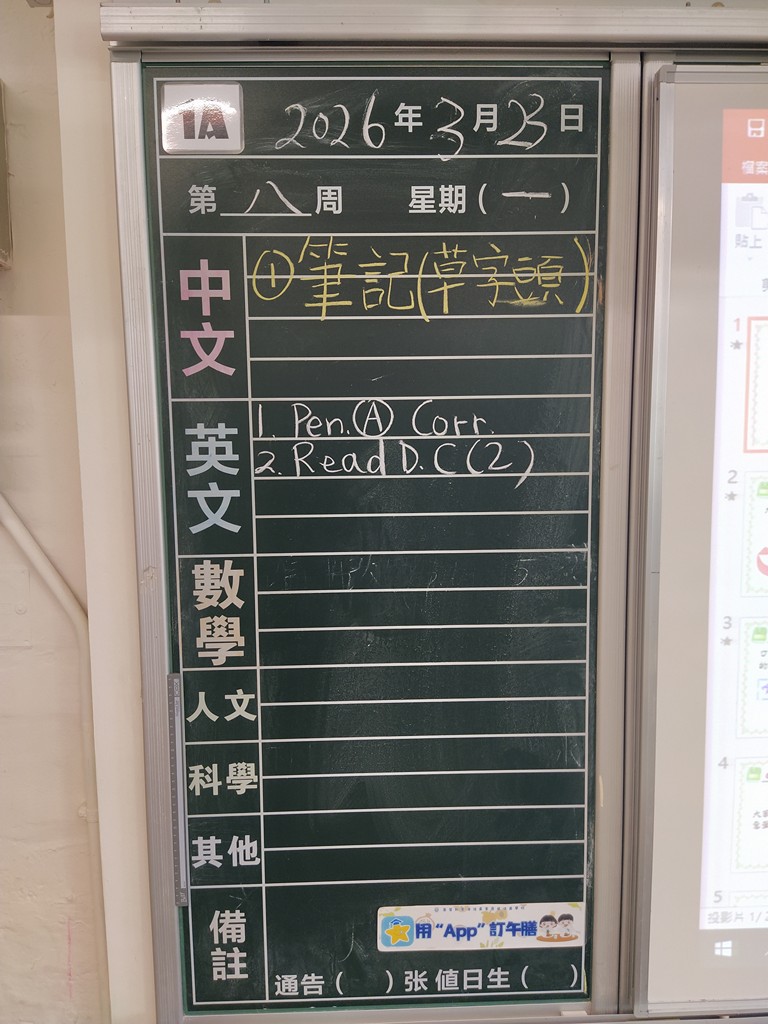 1A 2026年3月23日
第八周 星期(一)
中文
①筆記(草字頭)
英文
1. Pen.Ⓐ Corr.
2. Read D.C(2)
數學
人文
科學
其他
備註
用“App”訂午膳
通告( )张 值日生( )
檔案
貼上
1
2
3
4
5
投影片 1/